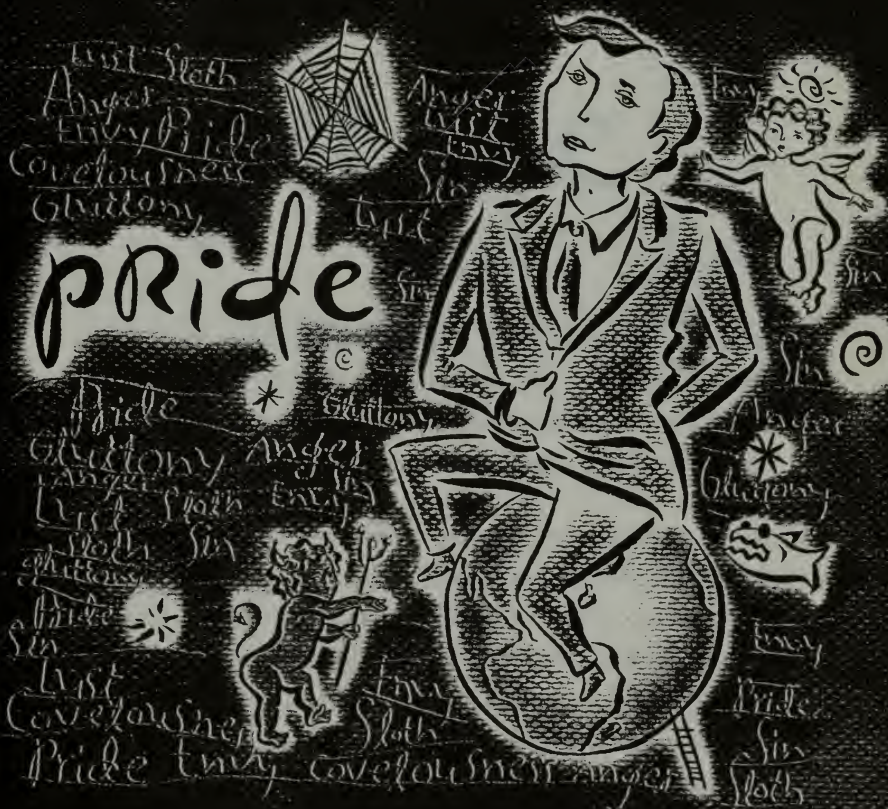 Lust Sloth
Anger
Envy Pride
Covelousness
Gluttony
Anger
Lust
Envy
Sin
Lust
Envy
pRide
Sin
Sin
Pride
Gluttony
Gluttony Anger
Anger Sin
Lust Sloth Envy
Sloth Sin
gluttony
Pride
Sin
Lust
Covelousness
Envy
Sloth
Pride Envy covelousness anger
Sin
Anger
Gluttony
Envy
Pride
Sin
Sloth